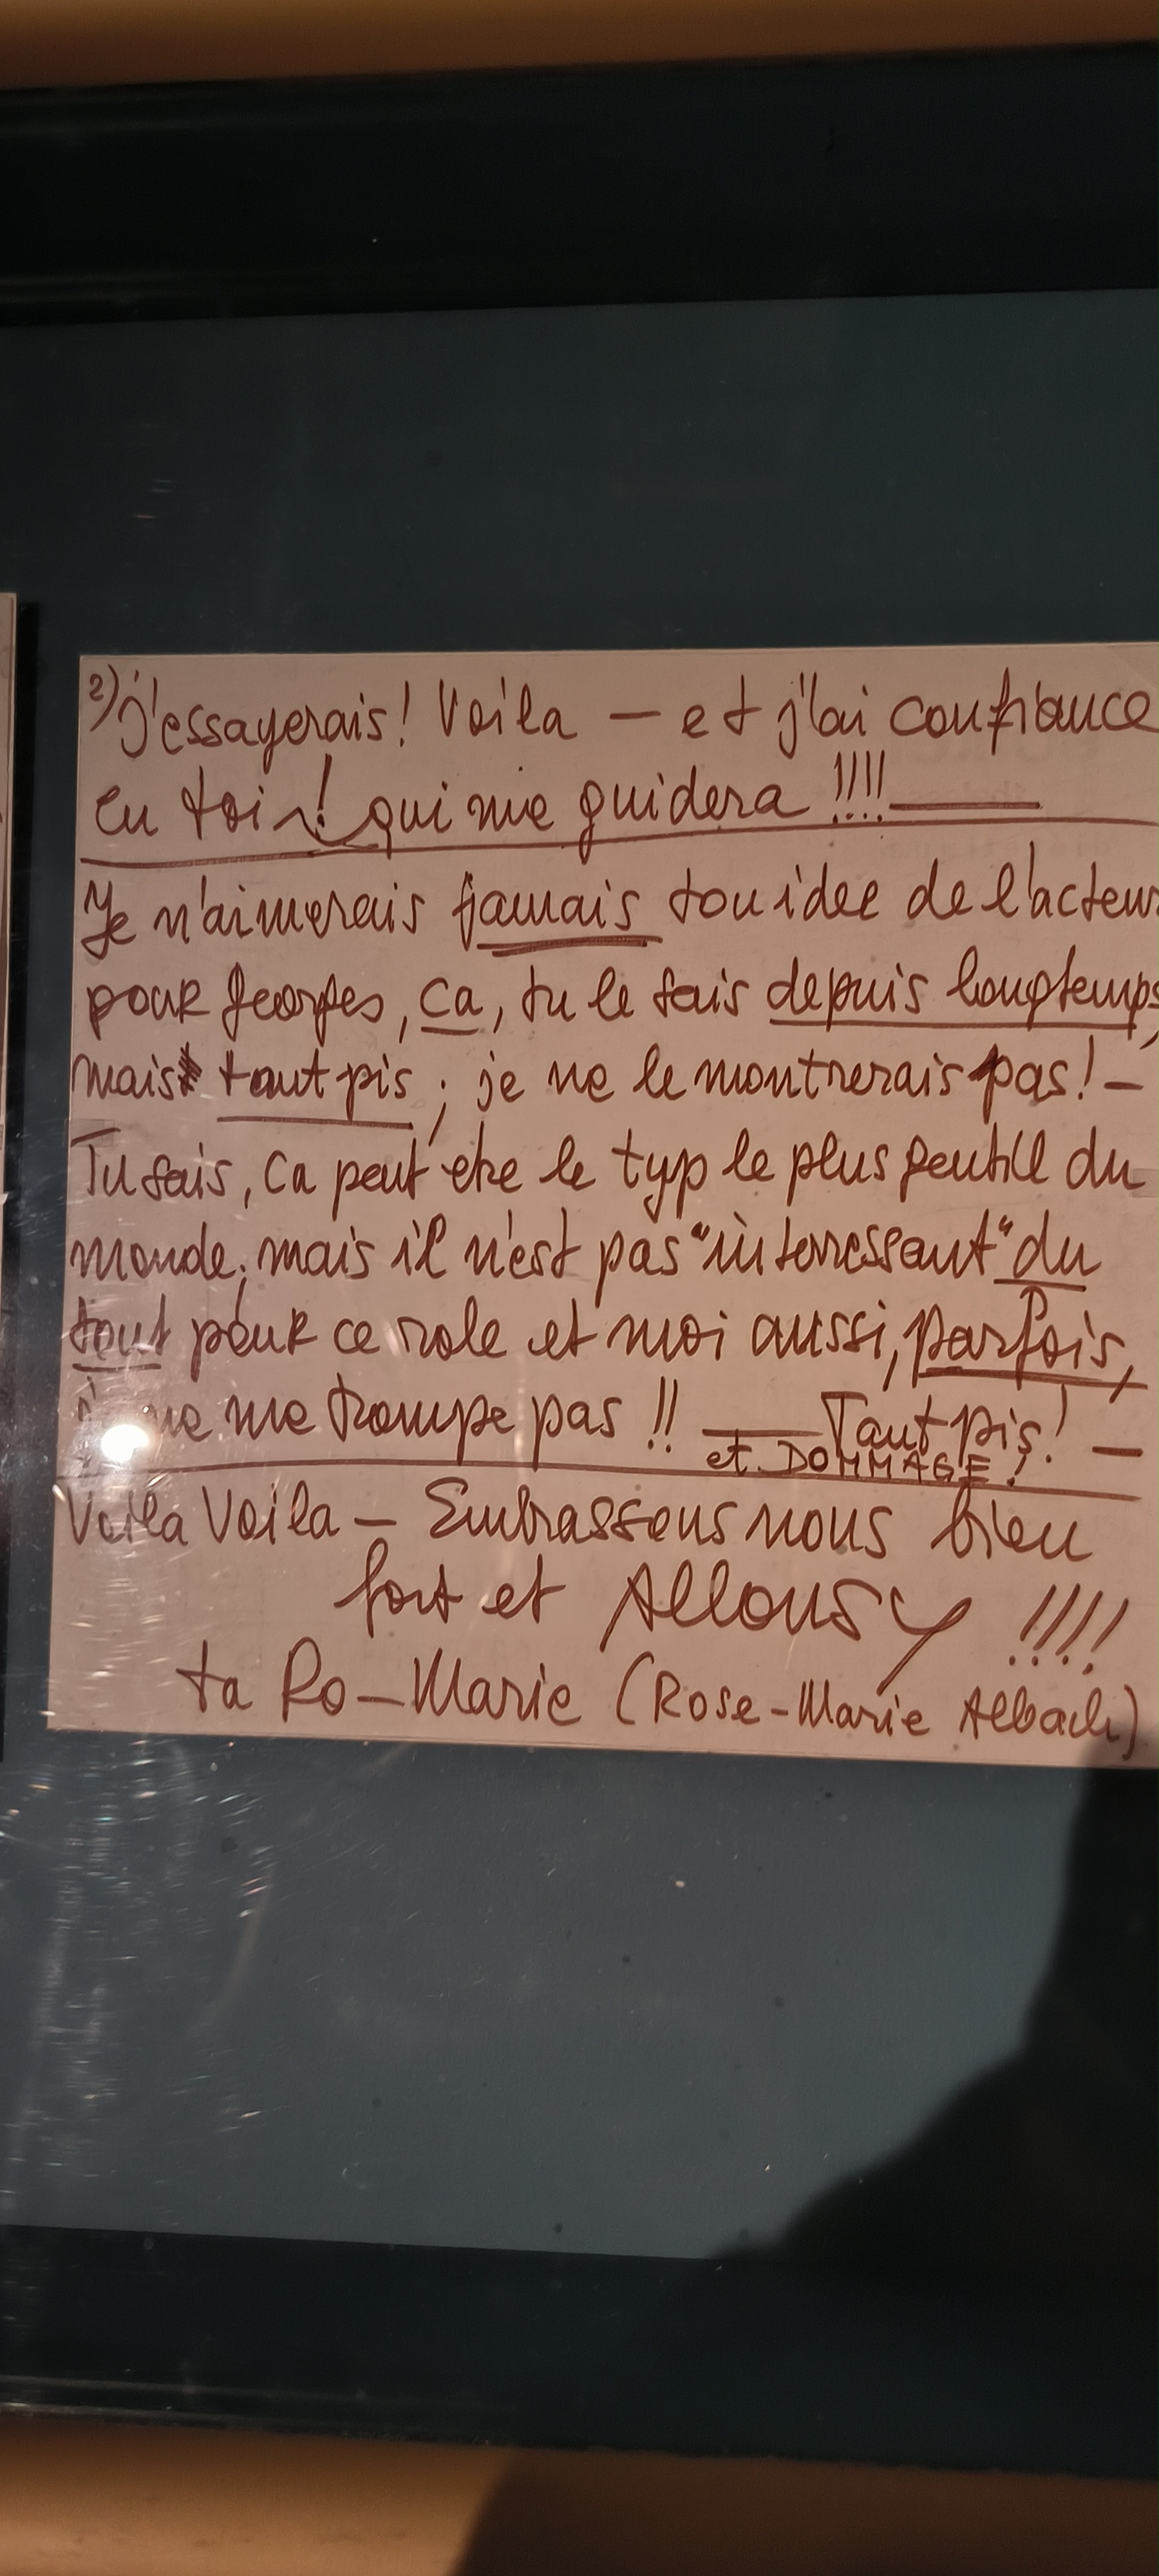 2) j'essayerais! Voila — et j'ai confiance
en toi ! qui me guidera !!!!
Je n'aimerais jamais ton idee de l'acteur
pour Georges, ca, tu le sais depuis longtemps,
mais tant pis ; je ne le montrerais pas! —
Tu sais, ca peut etre le typ le plus gentill du
monde; mais il n'est pas "interressant" du
tout pour ce role et moi aussi, parfois,
ne me trompe pas !! — Tant pis! —
et DOMMAGE!
Voila Voila — Embrassons nous bien
fort et Allonsy !!!!
ta Ro-Marie (Rose-Marie Albach)